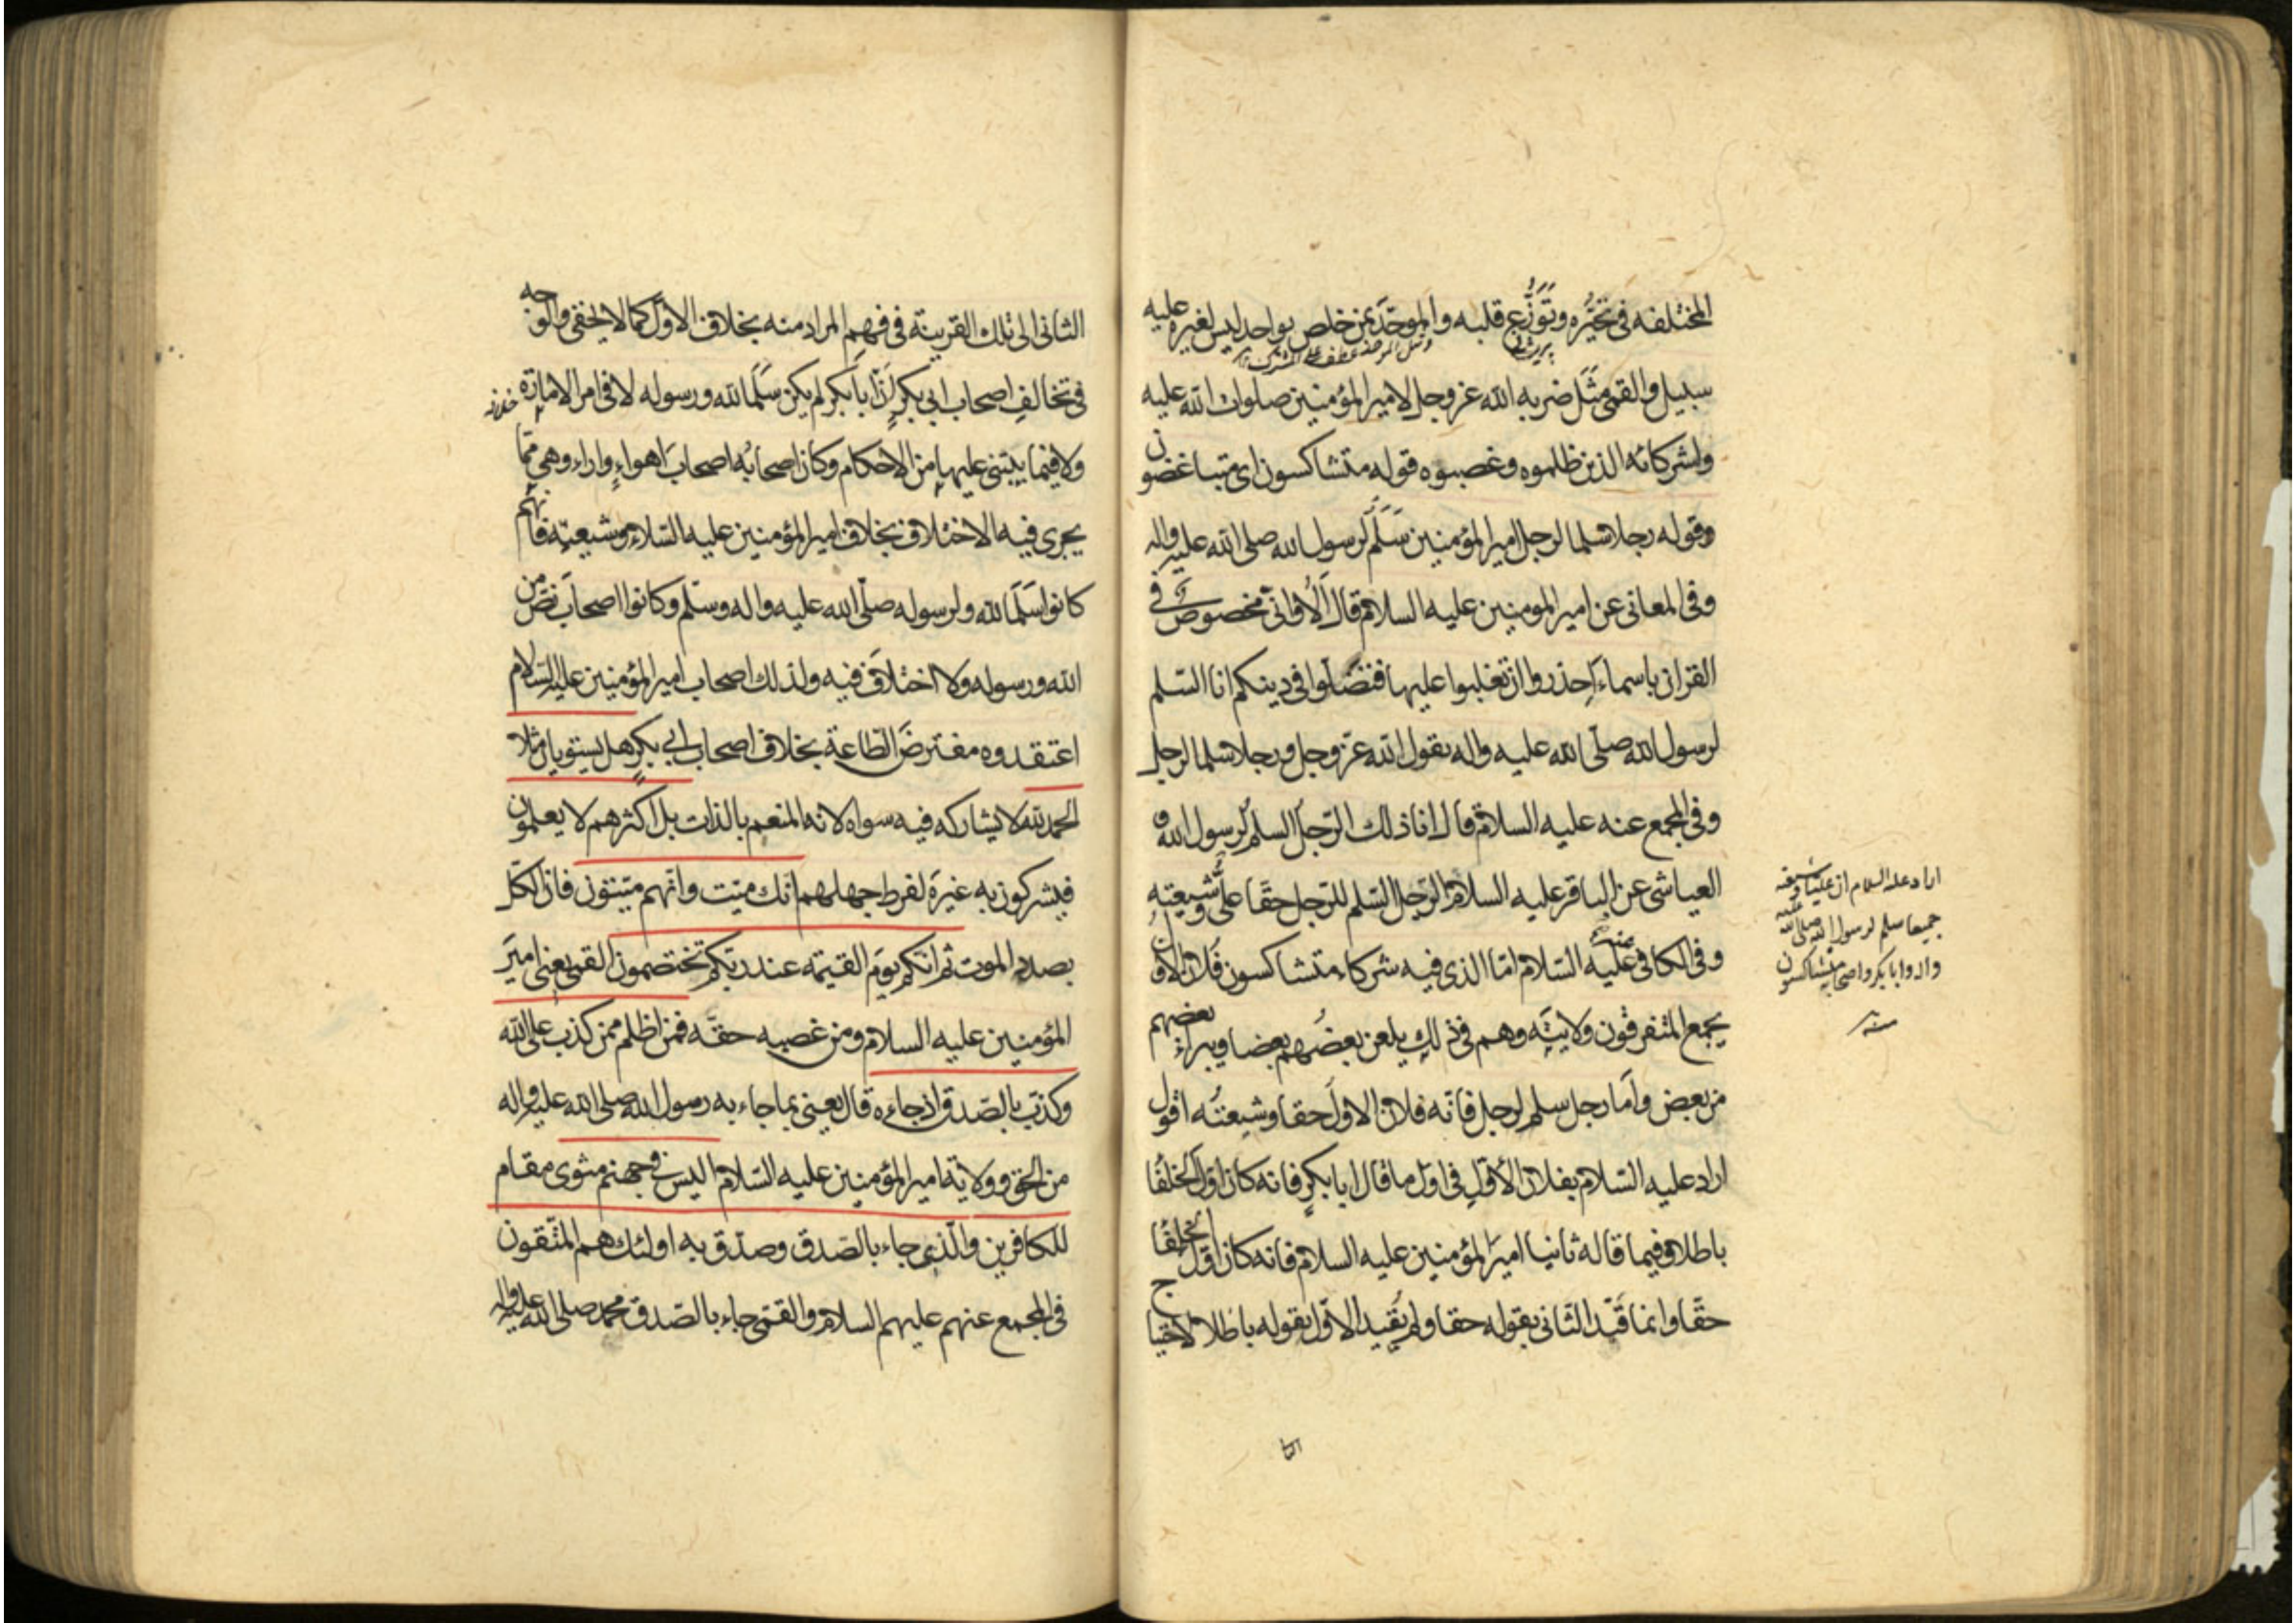 المختلفه فى تحيّره وتَوَزُّع قلبه والموحّد بمن خلص بواحد ليس لغيره عليه
سبيل والقمى مثَل ضربه الله عز وجل لامير المؤمنين صلوات الله عليه
ولشركائه الذين ظلموه وغصبوه قوله متشاكسون اى متباغضون
وقوله رجلا سلما لرجل امير المؤمنين سَلَم لرسول الله صلى الله عليه واله
وفى المعانى عن امير المومنين عليه السلام قال اَلا وانى مخصوص فى
القران باسماء اِحذروا ان تغلبوا عليها فتضلّوا فى دينكم انا السّلم
لرسول الله صلّى الله عليه واله يقول الله عزّ وجل ورجلا سلما لرجل
وفى المجمع عنه عليه السلام قال انا ذلك الرّجل السلم لرسول الله و
العياشى عن الباقر عليه السلام الرّجل السّلم للرّجل حقّا علىّ وشيعته
وفى الكافى عنه عليه السّلام امّا الذى فيه شركاء متشاكسون فلان الاول
يجمع المتفرقون ولايته وهم فى ذلك يلعن بعضُهم بعضا ويبراء بعضهم
من بعض وامّا رجل سلم لرجل فانّه فلان الاول حقا وشيعتُه اقول
اراد عليه السّلام بفلان الأول فى اول ما قال ابا بكرٍ فانه كان اول الخلفا
باطلا وفيما قاله ثانيا اميرَ المؤمنين عليه السلام فانه كان اول الخلفا
حقّا وانما قيّد الثانى بقوله حقا ولم يُقيد الاوّل بقوله باطلا لاحتيا
ج
اراد عليه السلام ان عليا وشيعته
جميعا سلم لرسول الله صلى الله عليه
واله وابا بكر واصحابه متشاكسون
منه
الثانى الى تلك القرينة فى فهم المراد منه بخلاف الاوّل كما لا يخفى والوجه
فى تخالف اصحاب ابى بكرٍ اَنّ اَبا بكر لم يكن سَلَما لله ورسوله لا فى امر الامارة
ولا فيما يبتنى عليها من الاحكام وكان اصحابُه اصحابَ اهواءٍ واراء وهى ممّا
يجرى فيه الاختلاف بخلاف امير المؤمنين عليه السّلام وشيعته فانهم
كانوا سَلَما لله ولرسوله صلّى الله عليه واله وسلّم وكانوا اصحابَ نصّ من
الله ورسوله ولا اختلاف فيه ولذلك اصحاب امير المؤمنين عليه السّلام
اعتقدوه مفترضَ الطّاعة بخلاف اصحاب ابى بكرٍ هل يستويان مثلا
الحمد لله لا يشاركه فيه سواه لانه المنعم بالذات بل اكثرهم لا يعلمون
فيشركون به غيرَه لفرط جهلهم انّك ميّت وانّهم ميّتون فان الكل
بصدد الموت ثم انكم يوم القيمة عند ربّكم تختصمون القمى يعنى اميرَ
المؤمنين عليه السلام ومن غصبه حقّه فمن اظلم ممن كذب على الله
وكذّب بالصّدق اذ جاءه قال يعنى بما جاء به رسول الله صلى الله عليه واله
من الحق وولاية امير المؤمنين عليه السّلام اليس فى جهنم مثوى مقام
للكافرين والّذى جاء بالصّدق وصدّق به اولئك هم المتّقون
فى المجمع عنهم عليهم السلام والقمّى جاء بالصّدق محمد صلى الله عليه واله